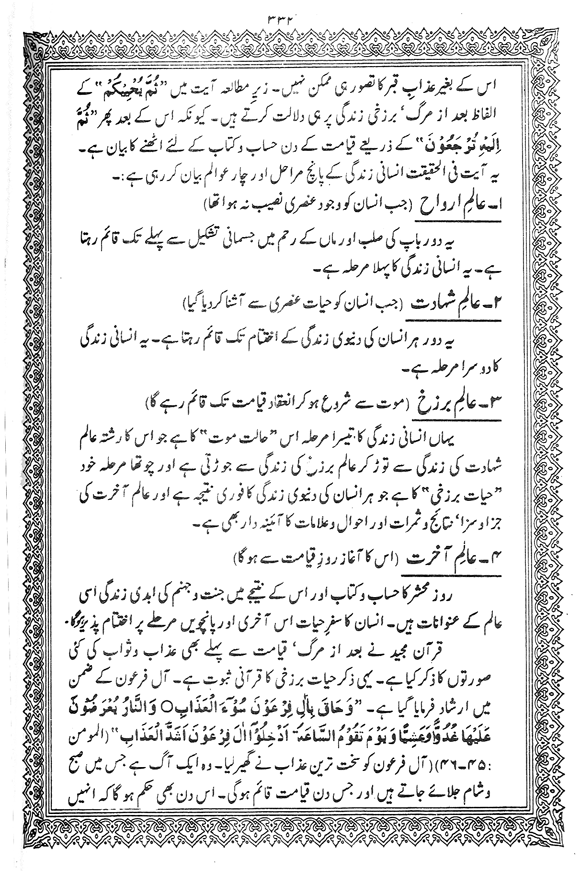 ۳۳۲
اس کے بغیر عذابِ قبر کا تصور ہی ممکن نہیں۔ زیرِ مطالعہ آیت میں "ثُمَّ يُحْيِيكُمْ" کے
الفاظ بعد از مرگ، برزخی زندگی پر ہی دلالت کرتے ہیں۔ کیونکہ اس کے بعد پھر "ثُمَّ
اِلَيْهِ تُرْجَعُوْنَ" کے ذریعے قیامت کے دن حساب و کتاب کے لئے اٹھنے کا بیان ہے۔
یہ آیت فی الحقیقت انسانی زندگی کے پانچ مراحل اور چار عوالم بیان کر رہی ہے:۔
۱۔ عالمِ ارواح (جب انسان کو وجود عنصری نصیب نہ ہوا تھا)
یہ دور باپ کی صلب اور ماں کے رحم میں جسمانی تشکیل سے پہلے تک قائم رہتا
ہے۔ یہ انسانی زندگی کا پہلا مرحلہ ہے۔
۲۔ عالمِ شہادت (جب انسان کو حیات عنصری سے آشنا کر دیا گیا)
یہ دور ہر انسان کی دنیوی زندگی کے اختتام تک قائم رہتا ہے۔ یہ انسانی زندگی
کا دوسرا مرحلہ ہے۔
۳۔ عالمِ برزخ (موت سے شروع ہو کر انعقاد قیامت تک قائم رہے گا)
یہاں انسانی زندگی کا تیسرا مرحلہ اس "حالت موت" کا ہے جو اس کا رشتہ عالم
شہادت کی زندگی سے توڑ کر عالم برزخ کی زندگی سے جوڑتی ہے اور چوتھا مرحلہ خود
"حیات برزخی" کا ہے جو ہر انسان کی دنیوی زندگی کا فوری نتیجہ ہے اور عالم آخرت کی
جزا و سزا، نتائج و ثمرات اور احوال و علامات کا آئینہ دار بھی ہے۔
۴۔ عالمِ آخرت (اس کا آغاز روزِ قیامت سے ہو گا)
روز محشر کا حساب و کتاب اور اس کے نتیجے میں جنت و جہنم کی ابدی زندگی اسی
عالم کے عنوانات ہیں۔ انسان کا سفرِ حیات اس آخری اور پانچویں مرحلے پر اختتام پذیر ہو گا۔
قرآن مجید نے بعد از مرگ، قیامت سے پہلے بھی عذاب و ثواب کی کئی
صورتوں کا ذکر کیا ہے۔ یہی ذکر حیات برزخی کا قرآنی ثبوت ہے۔ آل فرعون کے ضمن
میں ارشاد فرمایا گیا ہے۔ "وَحَاقَ بِاٰلِ فِرْعَوْنَ سُوْٓءُ الْعَذَابِ○ وَالنَّارُ يُعْرَضُوْنَ
عَلَيْهَا غُدُوًّا وَّعَشِيًّا وَيَوْمَ تَقُوْمُ السَّاعَةُ اَدْخِلُوْٓا اٰلَ فِرْعَوْنَ اَشَدَّ الْعَذَابِ" (المومن
۴۵: -۴۶) (آل فرعون کو سخت ترین عذاب نے گھیر لیا۔ وہ ایک آگ ہے جس میں صبح
و شام جلائے جاتے ہیں اور جس دن قیامت قائم ہوگی۔ اس دن بھی حکم ہو گا کہ انہیں